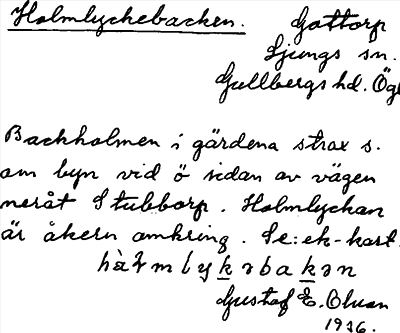 Holmlyckebacken. Gottorp
Ljungs sn.
Gullbergs hd. Ögl
Backholmen i gärdena strax s.
om byn vid ö sidan av vägen
neråt Stubborp. Holmlyckan
är åkern omkring. Se: ek-kart.
hàɫmlykəbakən
Gustaf E. Olsson
1926.